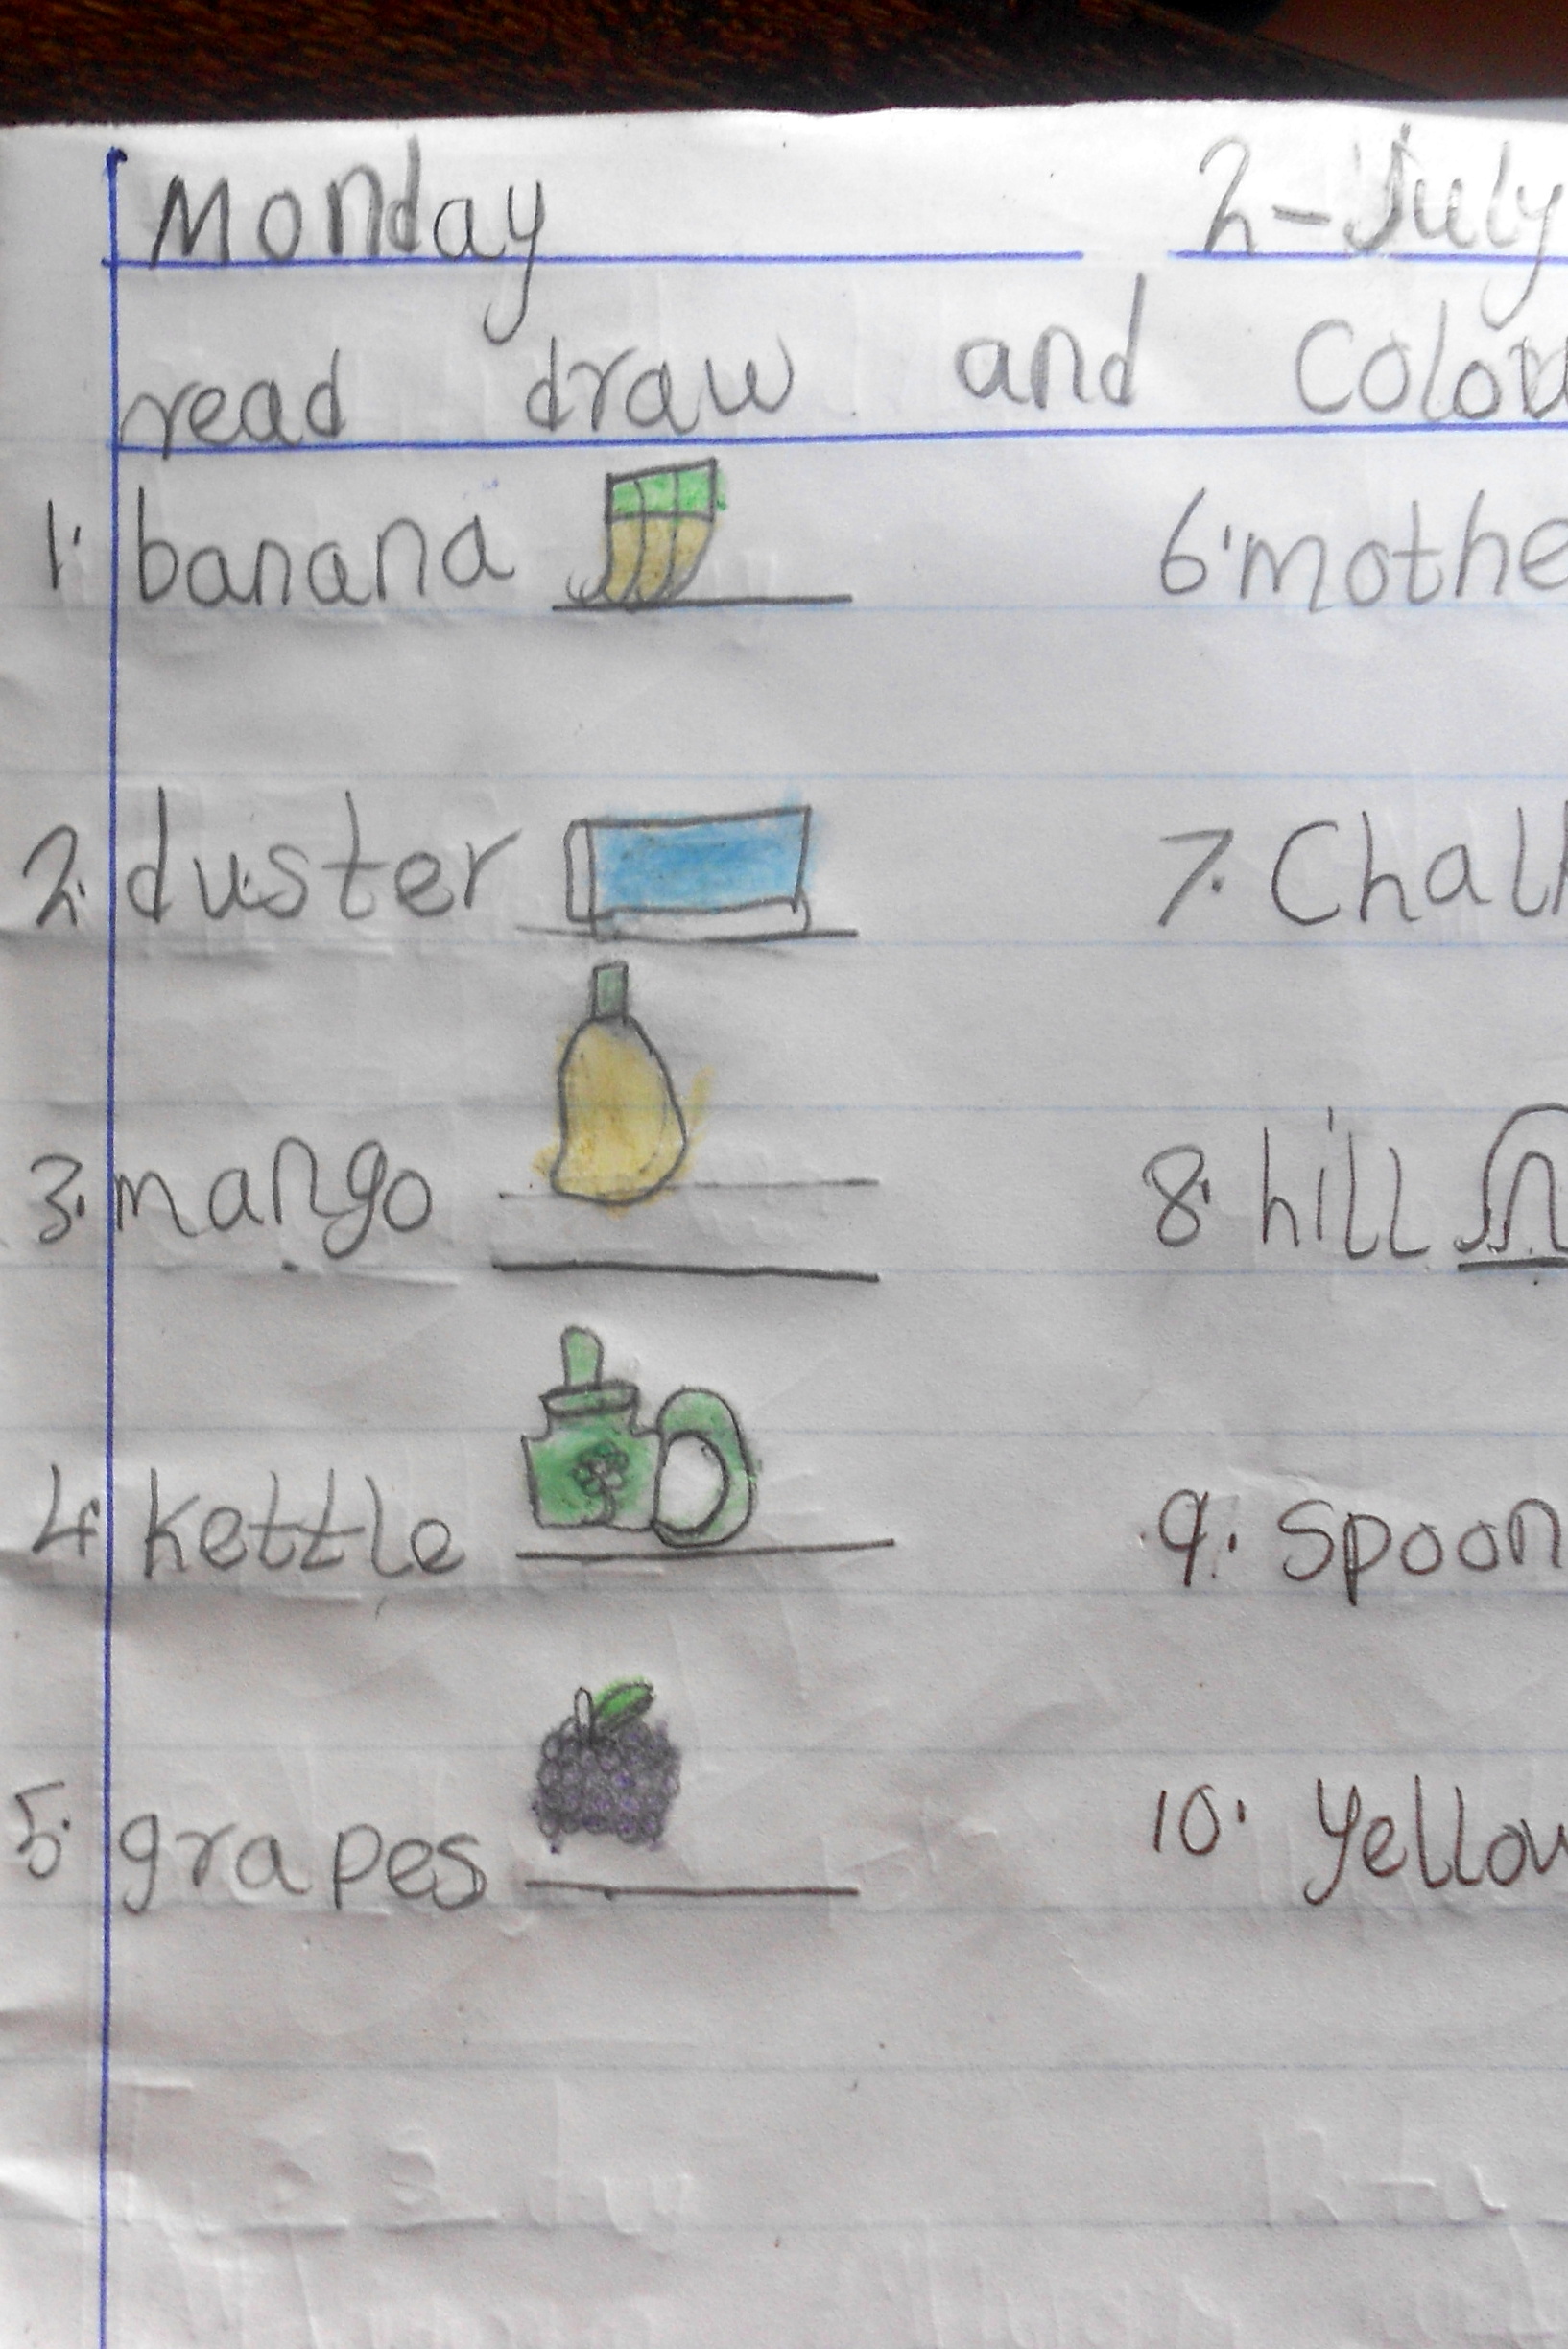 Monday 2-July
read draw and Colou
1. banana 6. mothe
2. duster 7. Chalk
3. mango 8. hill
4. kettle 9. Spoon
5. grapes 10. Yellow